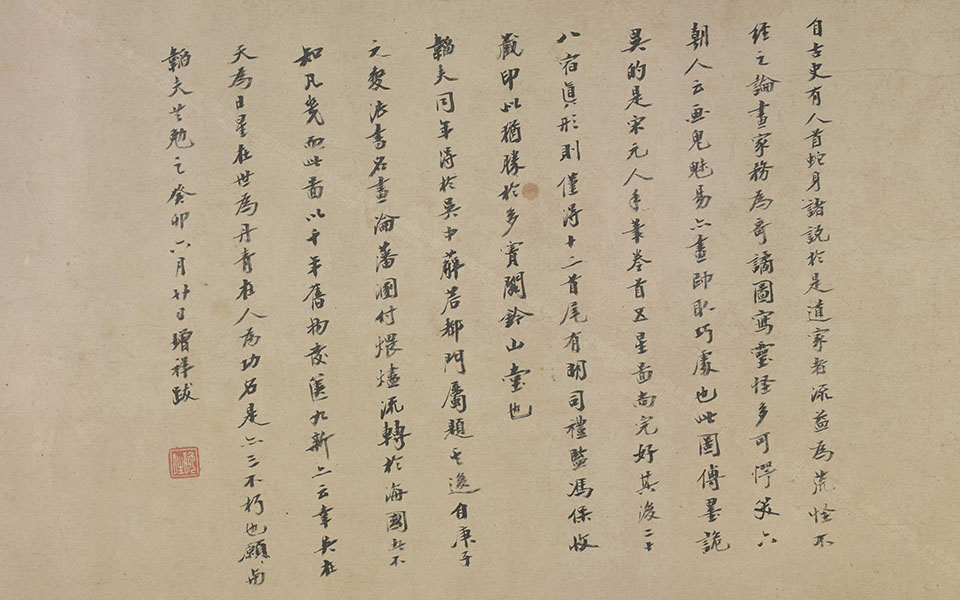 自古史有人首蛇身諸説於是道家者流益為荒怪不
經之論畫家務為奇譎圖寫靈怪多可愕笑六
朝人云画鬼魅易亦畫師取巧處也此圖傅墨詭
異的是宋元人手筆卷首五星圖尚完好其後二十
八宿真形則僅得十二首尾有明司禮監馮保收
藏印以猶勝於多寶閣鈐山堂也
韜夫同年得於吳中 都門屬題其後自庚子
之變法書名畫淪藩溷付煨燼流轉於海國者不
知凡幾而此圖以千年舊物發篋如新上云章其在
天為日星在世為丹青在人為功名是亦三不朽也願與
韜夫共勉之癸卯六月廿日增祥跋